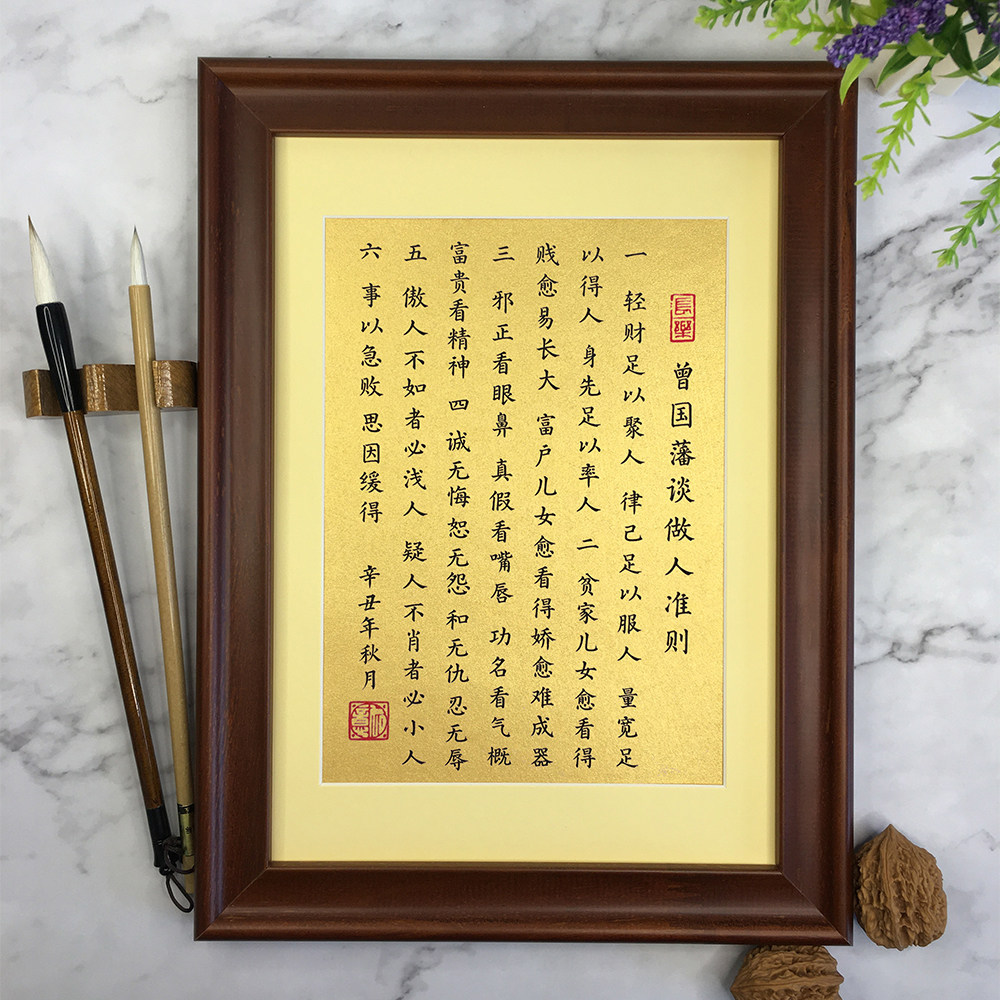 長樂
曾国藩谈做人准则
一 轻财足以聚人 律己足以服人 量宽足
以得人 身先足以率人 二 贫家儿女愈看得
贱愈易长大 富户儿女愈看得娇愈难成器
三 邪正看眼鼻 真假看嘴唇 功名看气概
富贵看精神 四 诚无悔 恕无怨 和无仇 忍无辱
五 傲人不如者必浅人 疑人不肖者必小人
六 事以急败 思因缓得 辛丑年秋月